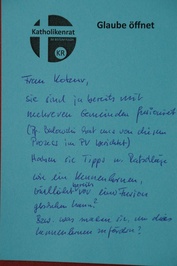 Katholikenrat
KR
Glaube öffnet
Frau Kobow,
Sie sind ja bereits mit
mehreren Gemeinden fusioniert
(H. hat uns von diesem
Prozess im PV berichtet)
Haben Sie Tipps u. Ratschläge
wie ein Kennenlernen,
vielleicht bereits vor einer Fusion
gestehen kann?
Bzw. was machen Sie, um das
kennenlernen zu fördern?